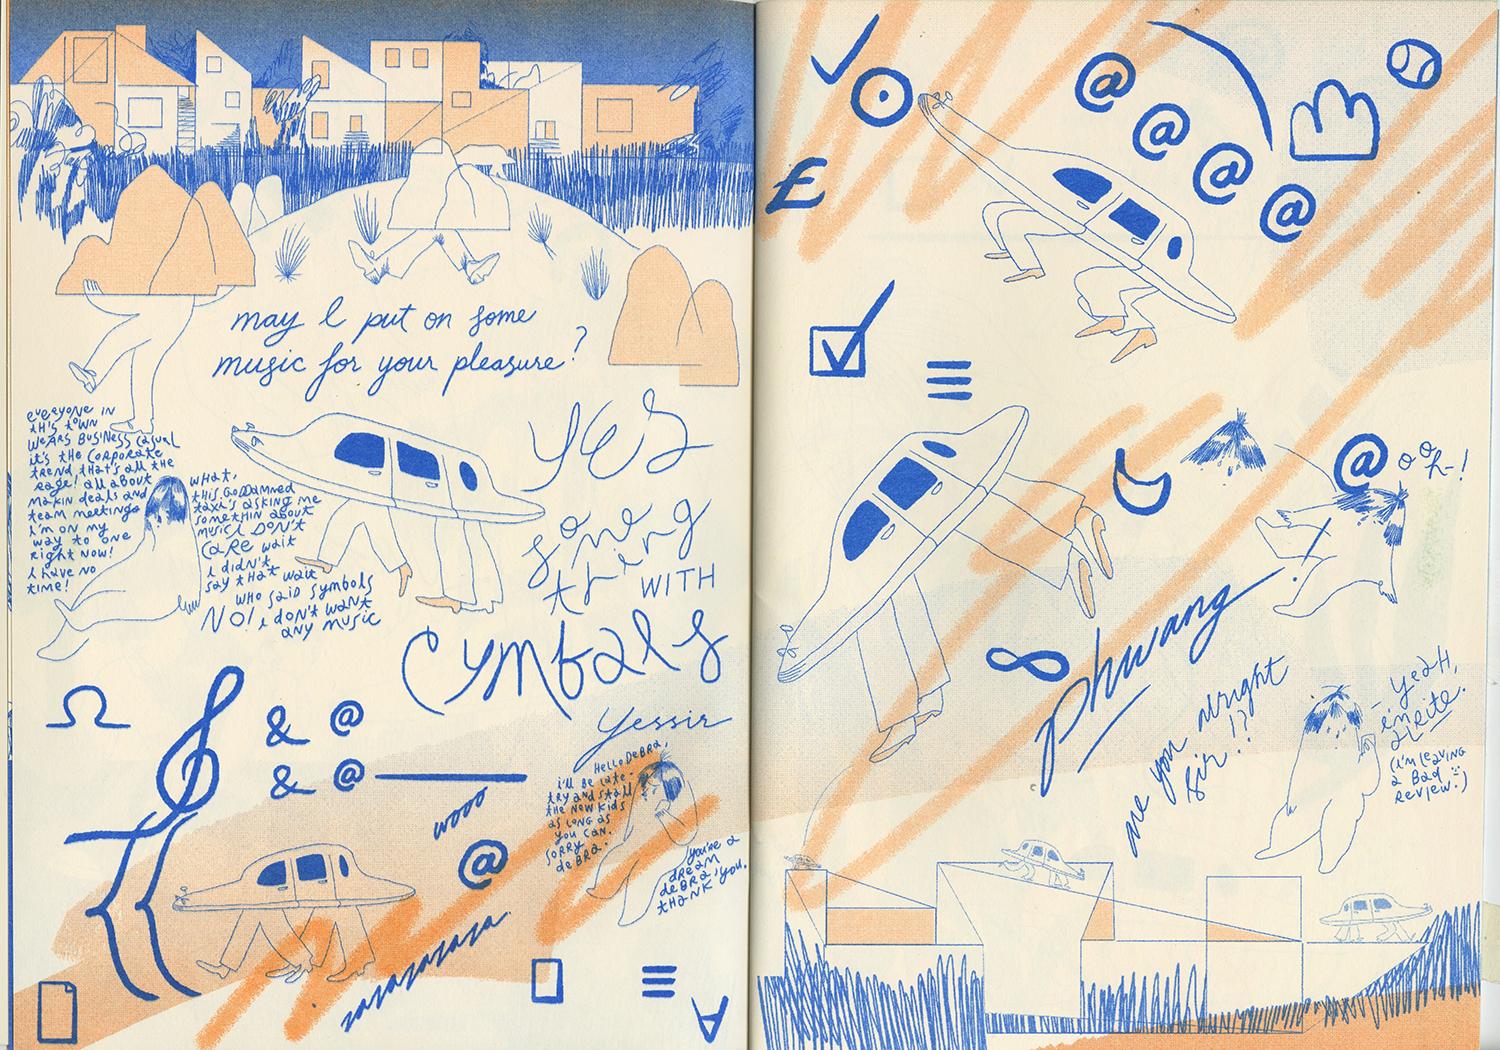 may I put on some
music for your pleasure?
everyone in
this town
wears business casual
it's the corporate
trend, that's all the
rage! all about
makin deals and
team meetings
i'm on my
way to one
right now!
i have no
time!
what,
this goddamned
taxi's asking me
somethin about
music i don't
care wait
i didn't
say that wait
who said symbols
No! i don't want
any music
yes
something
WITH
cymbals
yessir
& @
& @
wooo
@
zazazazaza
Hello Debra,
i'll be late.
try and stall
the new kids
as long as
you can.
sorry
debra.
you're a
dream
debra, you.
thank
A
£
@
@
@
@
@ ooh-!
phwang
are you alright
sir!?
- yeah,
i'm
alrite.
(i'm leaving
a bad
review :))